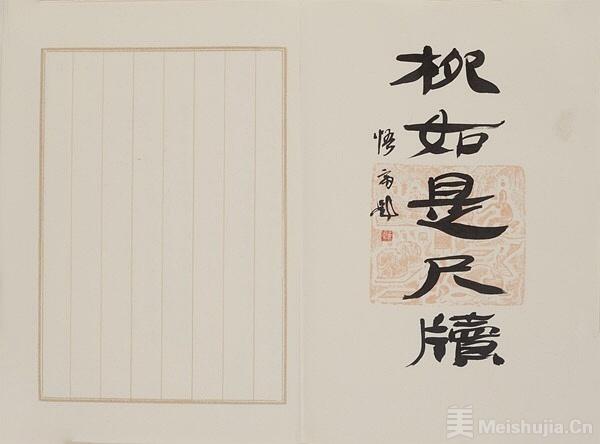 柳如是尺牘
悟齋題
美 Meishujia.Cn